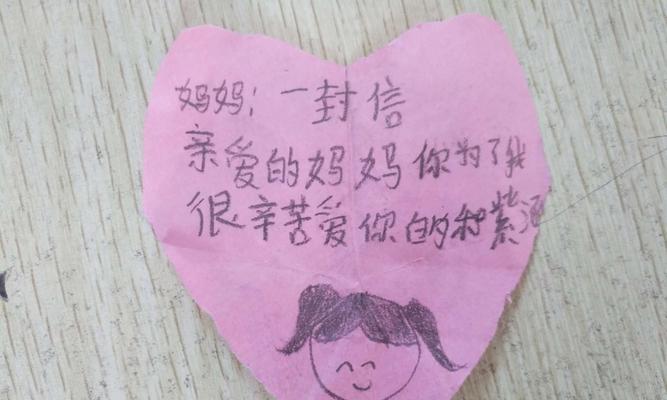 妈妈：一封信
亲爱的妈妈你为了我
很辛苦爱你的 紫涵